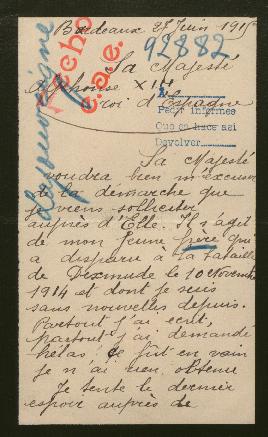 Bordeaux 27 Juin 1915
92882
Sa Majesté
Alphonse XIII
roi d'Espagne
Pedir informes
Que se hace asi
Devolver
Sa Majesté
voudra bien m'excuser
de la démarche que
je viens solliciter
auprès d'Elle. Il s'agit
de mon jeune frère qui
a disparu a la bataille
de Dixmude le 10 Novembre
1914 et dont je suis
sans nouvelles depuis.
Partout j'ai écrit,
partout j'ai demandé
hélas ce fut en vain
je n'ai rien obtenu
Je tente le dernier
espoir auprès de